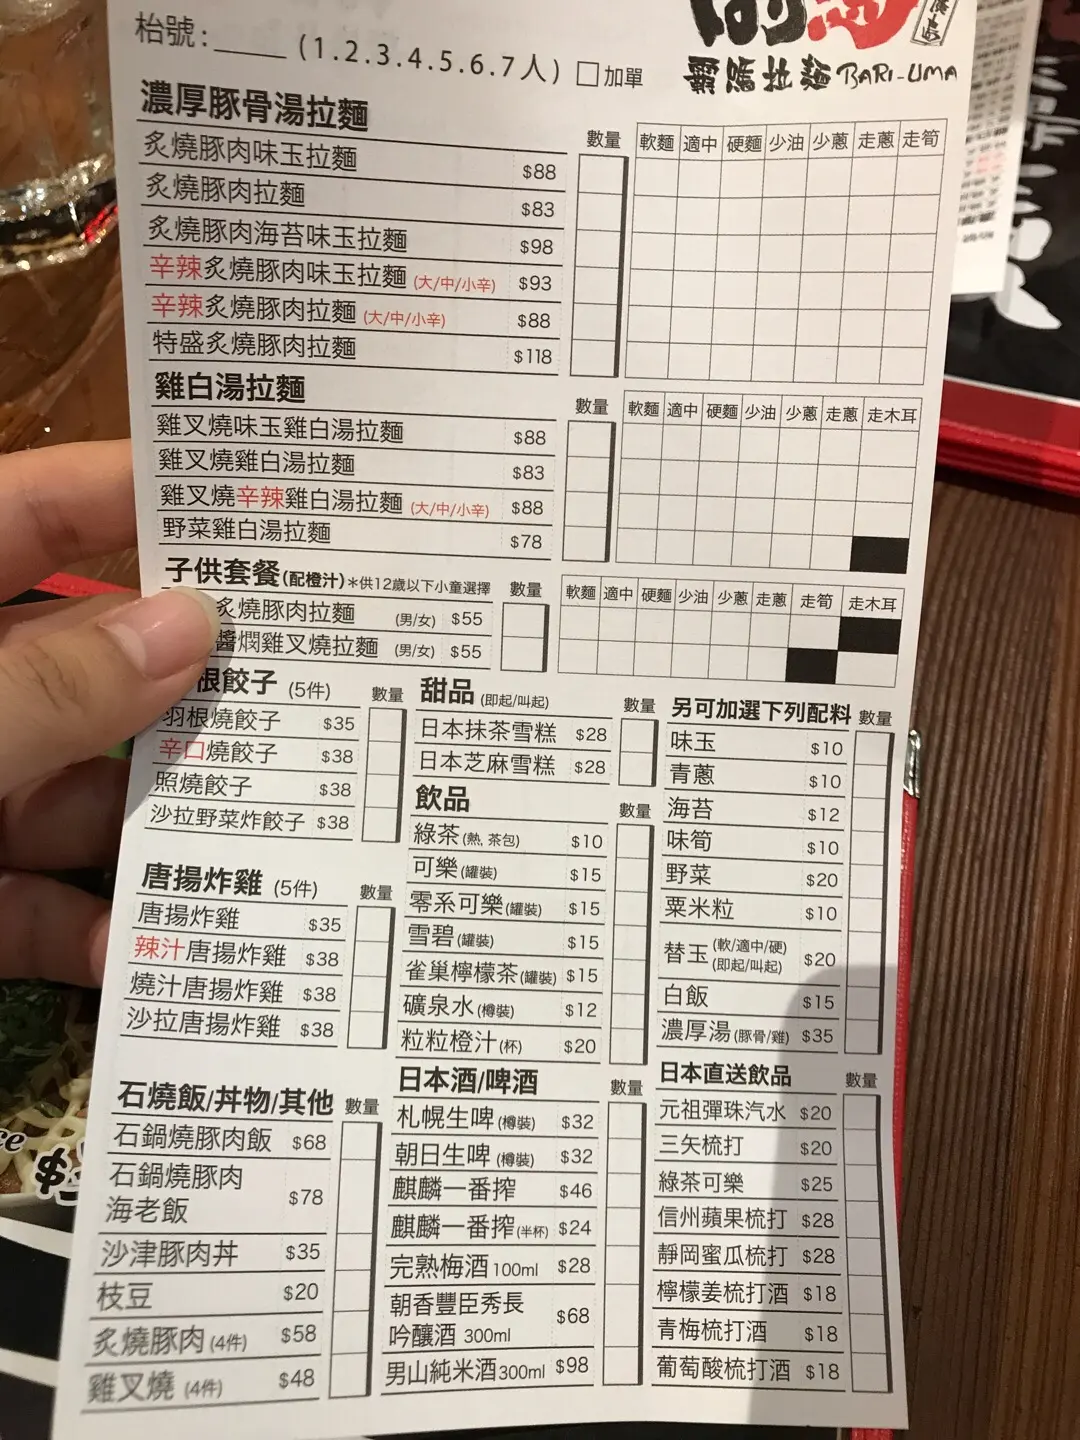 枱號:_____ (1.2.3.4.5.6.7人) □加單
霸嗎拉麵 BARI-UMA
濃厚豚骨湯拉麵 數量 軟麵 適中 硬麵 少油 少蔥 走蔥 走筍
炙燒豚肉味玉拉麵 $88
炙燒豚肉拉麵 $83
炙燒豚肉海苔味玉拉麵 $98
辛辣炙燒豚肉味玉拉麵 (大/中/小辛) $93
辛辣炙燒豚肉拉麵 (大/中/小辛) $88
特盛炙燒豚肉拉麵 $118
雞白湯拉麵 數量 軟麵 適中 硬麵 少油 少蔥 走蔥 走木耳
雞叉燒味玉雞白湯拉麵 $88
雞叉燒雞白湯拉麵 $83
雞叉燒辛辣雞白湯拉麵 (大/中/小辛) $88
野菜雞白湯拉麵 $78
子供套餐(配橙汁)*供12歲以下小童選擇 數量 軟麵 適中 硬麵 少油 少蔥 走蔥 走筍 走木耳
炙燒豚肉拉麵 (男/女) $55
醬燜雞叉燒拉麵 (男/女) $55
根餃子 (5件) 數量
羽根燒餃子 $35
辛口燒餃子 $38
照燒餃子 $38
沙拉野菜炸餃子 $38
唐揚炸雞 (5件) 數量
唐揚炸雞 $35
辣汁唐揚炸雞 $38
燒汁唐揚炸雞 $38
沙拉唐揚炸雞 $38
石燒飯/丼物/其他 數量
石鍋燒豚肉飯 $68
石鍋燒豚肉
海老飯 $78
沙津豚肉丼 $35
枝豆 $20
炙燒豚肉 (4件) $58
雞叉燒 (4件) $48
甜品 (即起/叫起) 數量
日本抹茶雪糕 $28
日本芝麻雪糕 $28
飲品 數量
綠茶(熱, 茶包) $10
可樂(罐裝) $15
零系可樂(罐裝) $15
雪碧(罐裝) $15
雀巢檸檬茶(罐裝) $15
礦泉水(樽裝) $12
粒粒橙汁(杯) $20
日本酒/啤酒 數量
札幌生啤(樽裝) $32
朝日生啤(樽裝) $32
麒麟一番搾 $46
麒麟一番搾(半杯) $24
完熟梅酒100ml $28
朝香豐臣秀長
吟釀酒 300ml $68
男山純米酒300ml $98
另可加選下列配料 數量
味玉 $10
青蔥 $10
海苔 $12
味筍 $10
野菜 $20
粟米粒 $10
替玉 (軟/適中/硬) (即起/叫起) $20
白飯 $15
濃厚湯(豚骨/雞) $35
日本直送飲品 數量
元祖彈珠汽水 $20
三矢梳打 $20
綠茶可樂 $25
信州蘋果梳打 $28
靜岡蜜瓜梳打 $28
檸檬姜梳打酒 $18
青梅梳打酒 $18
葡萄酸梳打酒 $18